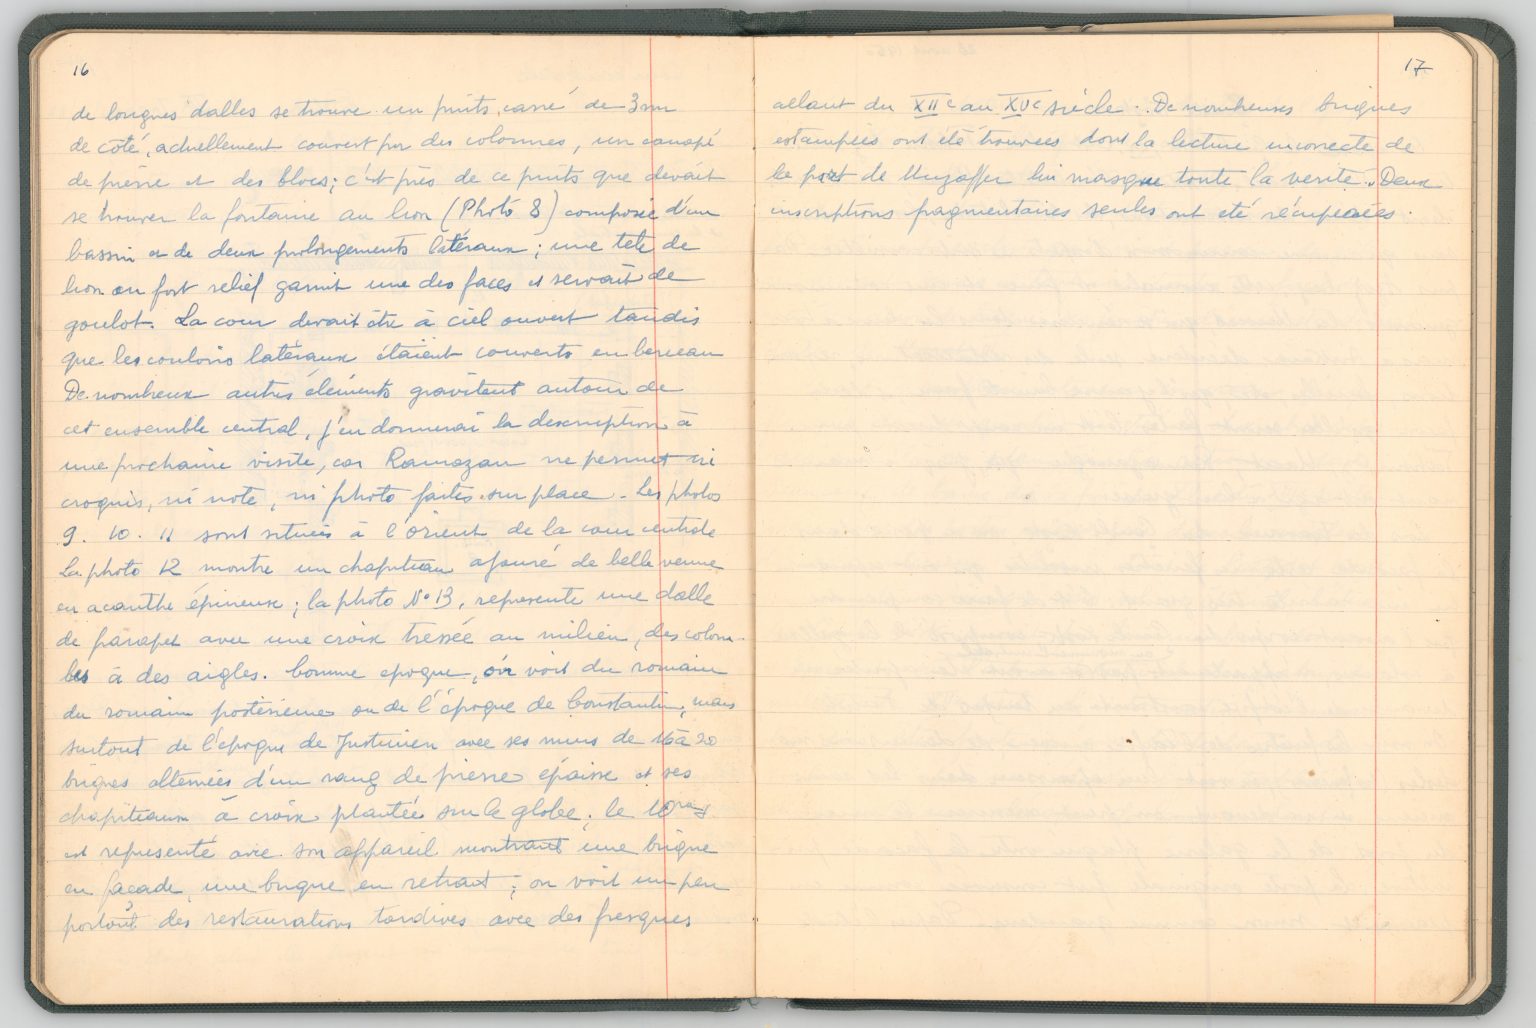 16
de longues dalles se trouve un puits carré de 3m
de côté, actuellement couvert par des colonnes, un canapé
de pierre et des blocs ; c'est près de ce puits que devait
se trouver la fontaine au lion (Photo 8) composée d'un
bassin et de deux prolongements latéraux ; une tete de
lion en fort relief garnit une des faces et servait de
goulot. La cour devait être à ciel ouvert tandis
que les couloirs latéraux étaient couverts en berceau
De nombreux autres éléments gravitent autour de
cet ensemble central, j'en donnerai la description à
une prochaine visite, car Ramazan ne permet ni
croquis, ni note, ni photo faites sur place. Les photos
9. 10. 11 sont situées à l'orient de la cour centrale
La photo 12 montre un chapiteau ajouré de belle venue
en acanthe épineuse ; la photo No 13, represente une dalle
de parapet avec une croix tressée au milieu, des colom-
bes à des aigles. Comme epoque, on voit du romain
du romain posterieur ou de l'époque de Constantin, mais
surtout de l'époque de Justinien avec ses murs de 16 à 20
briques alternées d'un rang de pierres épaisse et ses
chapiteaux à croix plantée sur le globe ; le 10
est representé avec son appareil montrant une brique
en façade, une brique en retrait ; on voit un peu
partout des restaurations tardives avec des fresques
17
allant du XIIe au XVe siècle. De nombreuses briques
estampées ont été trouvées dont la lecture incorrecte de
la part de Muzaffer lui masque toute la verité. Deux
inscriptions fragmentaires seules ont été récupérées.